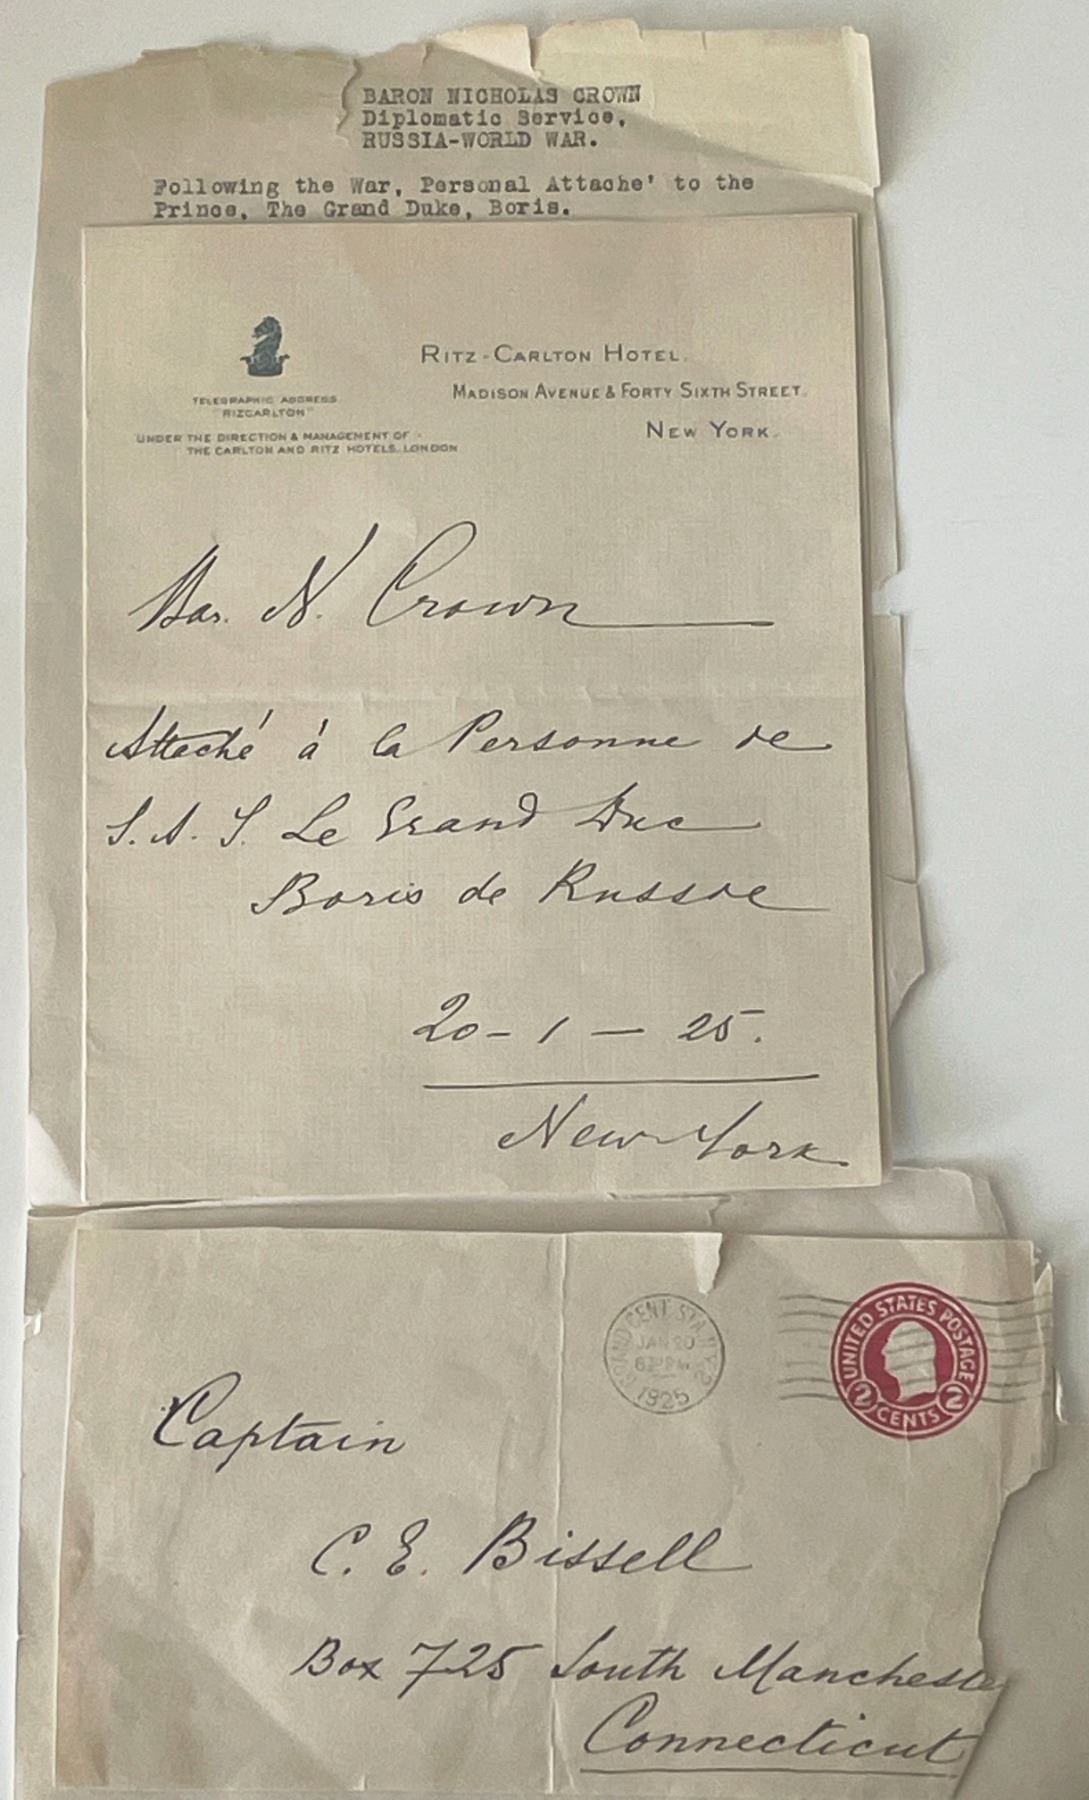 BARON NICHOLAS CROWN
Diplomatic Service,
RUSSIA-WORLD WAR.
Following the War, Personal Attache' to the
Prince, The Grand Duke, Boris.
RITZ-CARLTON HOTEL.
MADISON AVENUE & FORTY SIXTH STREET.
NEW YORK.
TELEGRAPHIC ADDRESS
"RIZCARLTON"
UNDER THE DIRECTION & MANAGEMENT OF
THE CARLTON AND RITZ HOTELS. LONDON
Bar. N. Crown
Attaché à la Personne de
S. A. I. Le Grand Duc
Boris de Russie
20-1-25.
New-York
GRAND CENT. STA. N.Y.
JAN 20
PM
1925
UNITED STATES POSTAGE
2 CENTS 2
Captain
C. E. Bissell
Box 725 South Mancheste
Connecticut